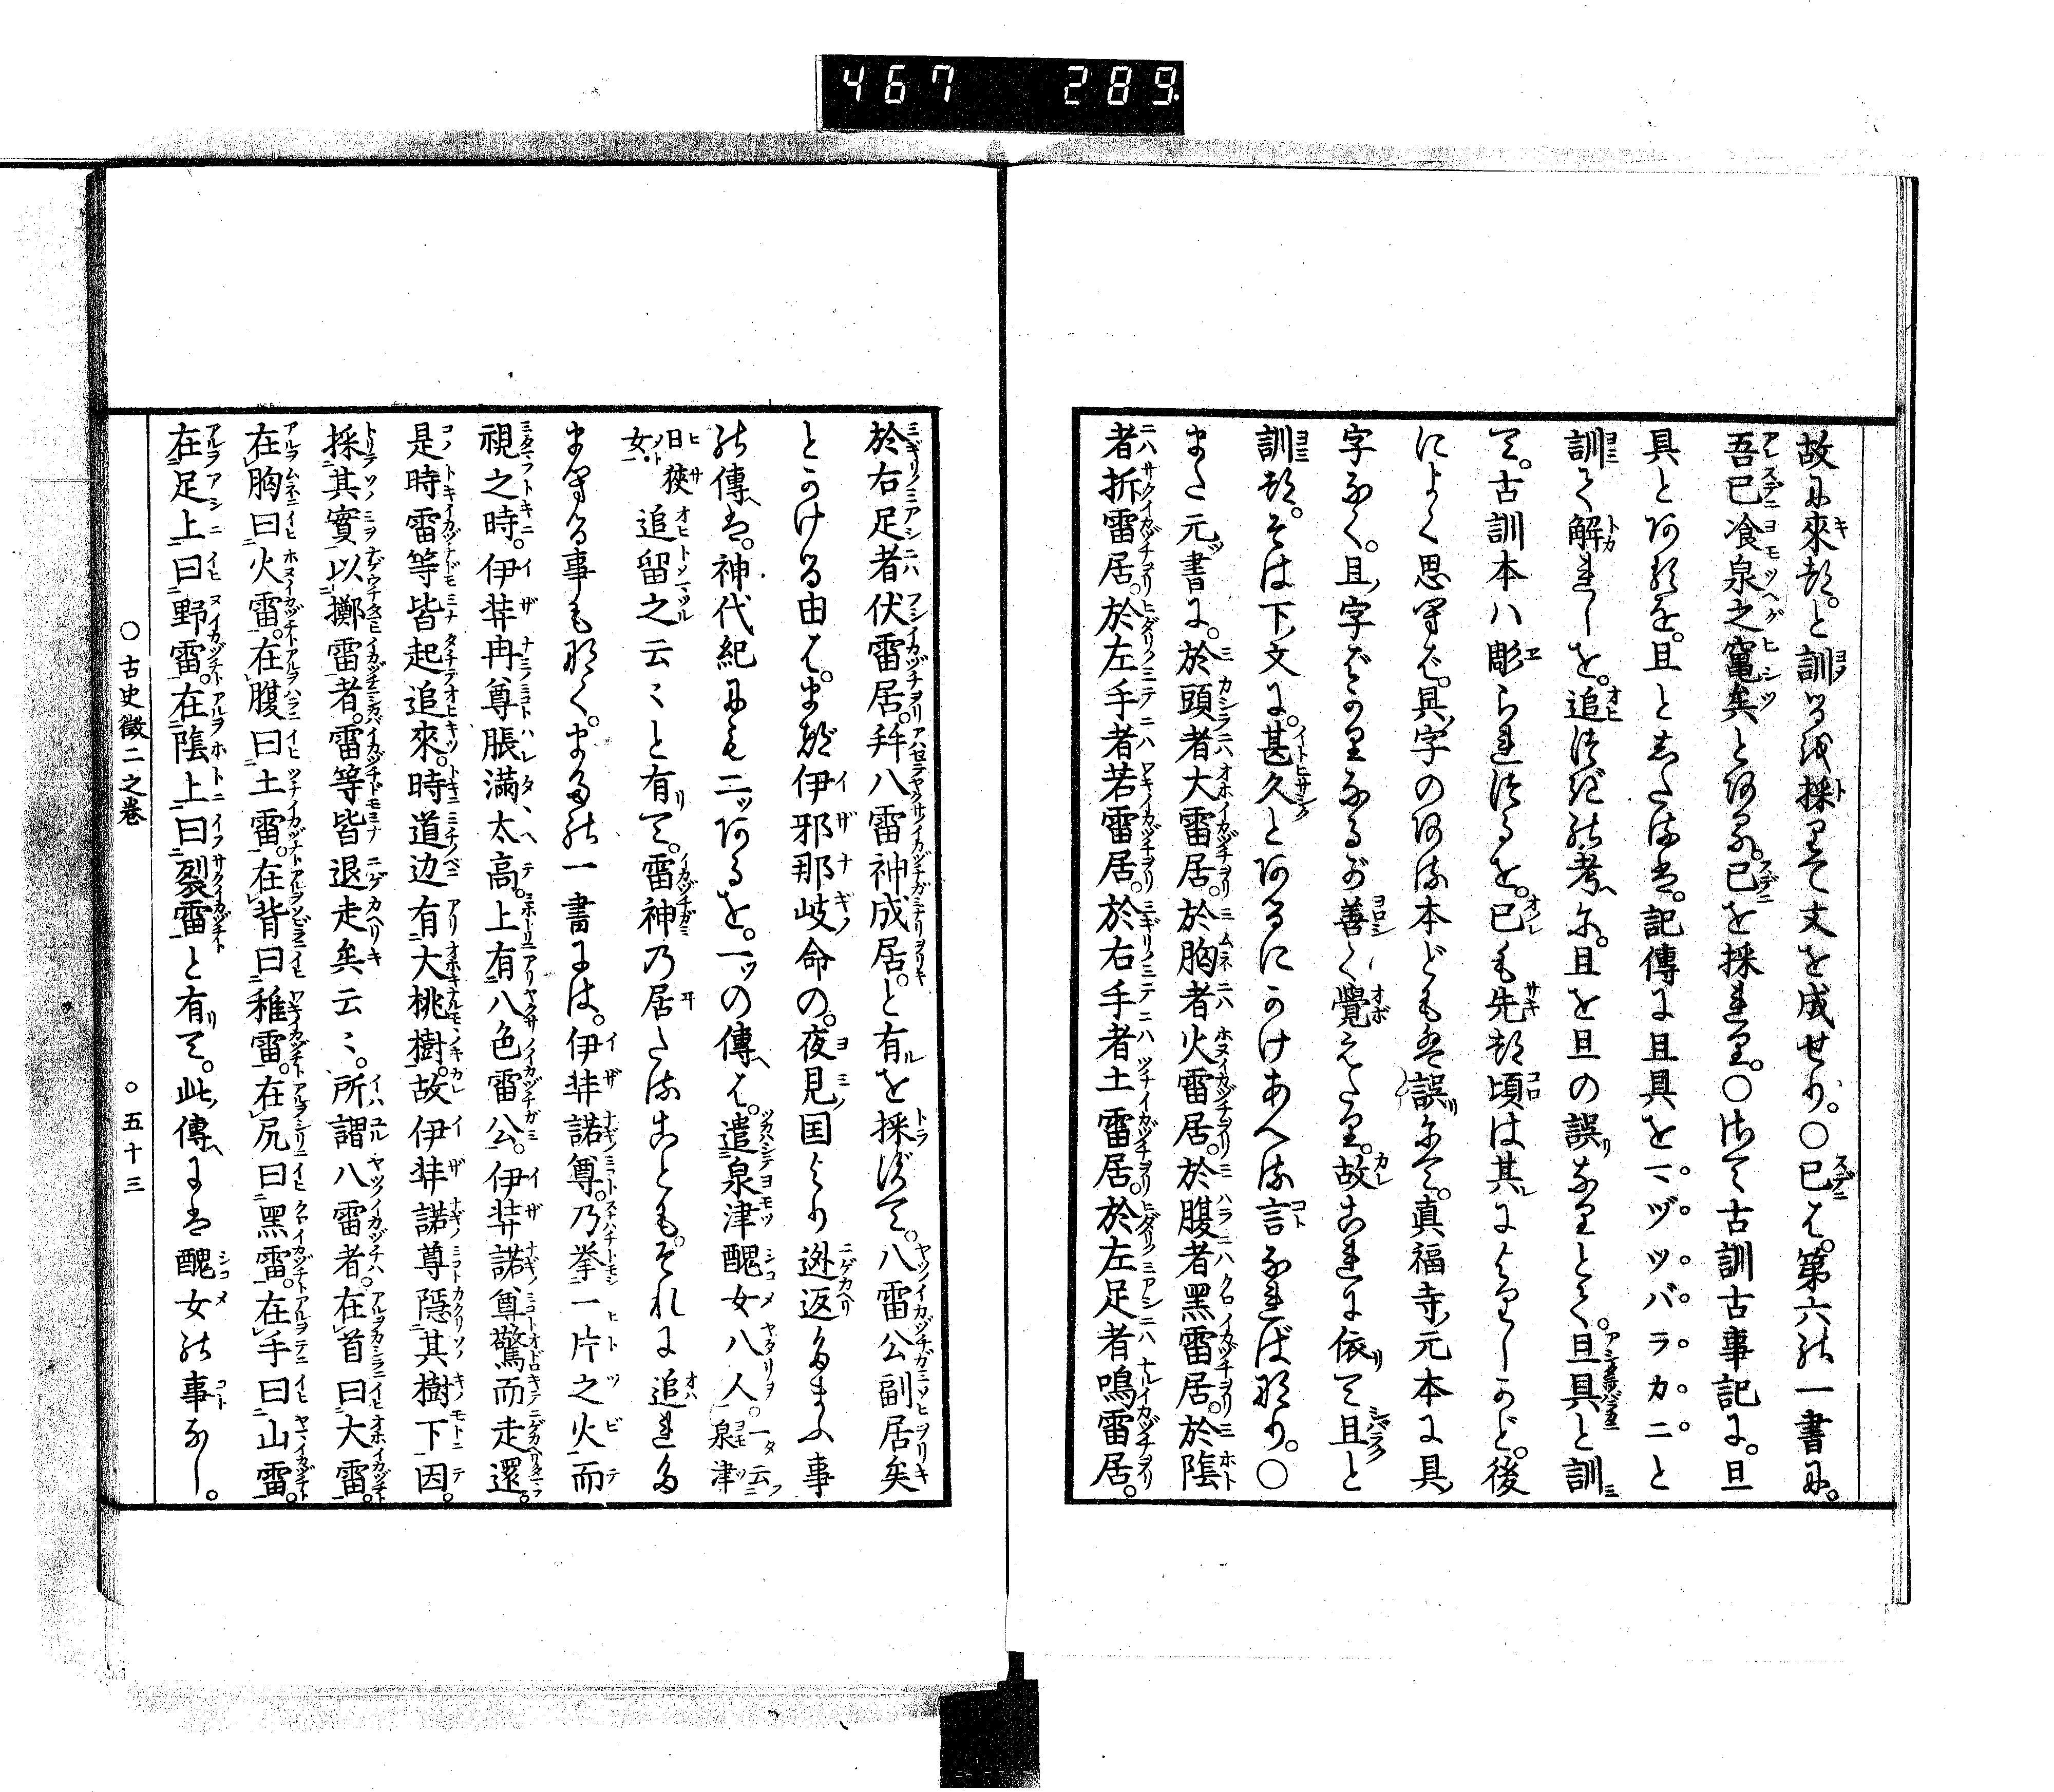 467 289
故に來つ。と訓るを採りて文を成せり。○已は。第六の一書に。
吾已飡泉之竃矣とある。已を採れり。○さて古訓古事記に。旦
具とあるを。且としたるは。記傳に且具を。マヅツバラカニと
訓て解れしを。追つぎの考へに。且を旦の誤りなりとて。旦具と訓
て。古訓本ハ彫られつるを。已も先つ頃は其によりしかど。後
によく思ふに。具字のある本どもは誤りにて。真福寺元本に具
字なく。且字ばかりなるぞ善く覺えたる。故これに依りて且と
訓つ。そは下文に。甚久とあるにかけあへる言なればなり。○
また元書に。於頭者大雷居。於胸者火雷居。於腹者黑雷居。於陰
者拆雷居。於左手者若雷居。於右手者土雷居。於左足者鳴雷居。
於右足者伏雷居。并八雷神成居。と有るを採らずて。八雷公副居矣
とかける由は。まづ伊邪那岐命の。夜見国より逃返たまふ事
の傳へは。神代紀にも二ツあるを。一ツの傳へは。遣泉津醜女八人。一云泉津
日狹女追留之云々と有りて。雷神乃居たることも。それに追れた
まへる事もなく。またの一書には。伊弉諾尊。乃擧一片之火而
視之時。伊弉冉尊脹滿太高。上有八色雷公。伊弉諾尊驚而走還。
是時雷等皆起追來。時道边有大桃樹。故伊弉諾尊隠其樹下因。
採其實以擲雷者。雷等皆退走矣云々。所謂八雷者。在首曰大雷。
在胸曰火雷。在腹曰土雷。在背曰稚雷。在尻曰黑雷。在手曰山雷。
在足上曰野雷。在陰上曰裂雷と有りて。此傳へには醜女の事なし。
○古史徴二之巻 ○五十三